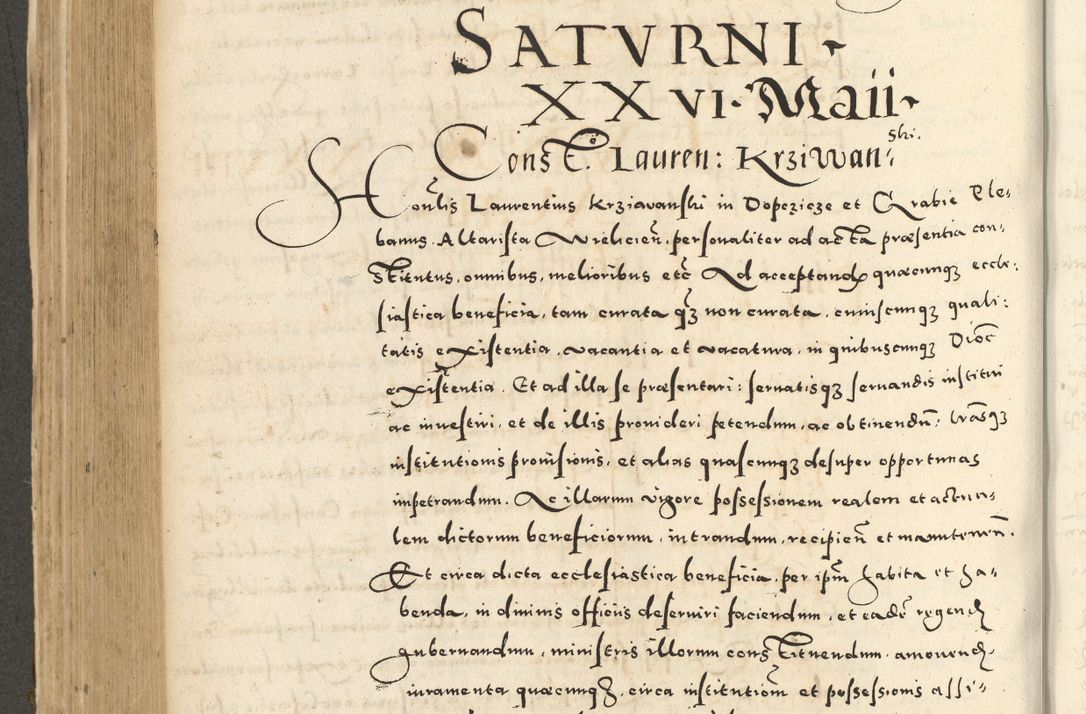 SATVRNI
XXVI. Maii.
Constō. Lauren: Krziwanski.
Honlis Laurentius Krziavanski in Dopczicze et Grabie Ple-
banus. Altarista Wielicieñ. personaliter ad acta præsentia con-
stitutus, omnibus, melioribus etc̃ Ad acceptand quæcunqȝ eccle-
siastica beneficia, tam curata qȝ non curata, cuiuscunqȝ quali:
tatis existentia, vacantia et vacatura, in quibuscunqȝ Dioc̃
existentia. Et ad illa se præsentari: seruatisqȝ seruandis institui
ac inuestiri, et de illis prouideri petendum, ac obtinendũ: l̃rasqȝ
institutionis prouisionis, et alias quascunqȝ desuper opportunas
inpetrandum. Ac illarum vigore possessionem realem et actua-
lem dictorum beneficiorum, intrandum, recipieñ et manuteneñ.
Et circa dicta ecclesiastica beneficia, per ip̃m habita et ha-
benda, in diuinis officiis deseruiri faciendum, et eadẽ regend
gubernandum, ministris illorum constituendum, amouend
iuramenta quæcunqȝ, circa institutiõm et possessionis assi-